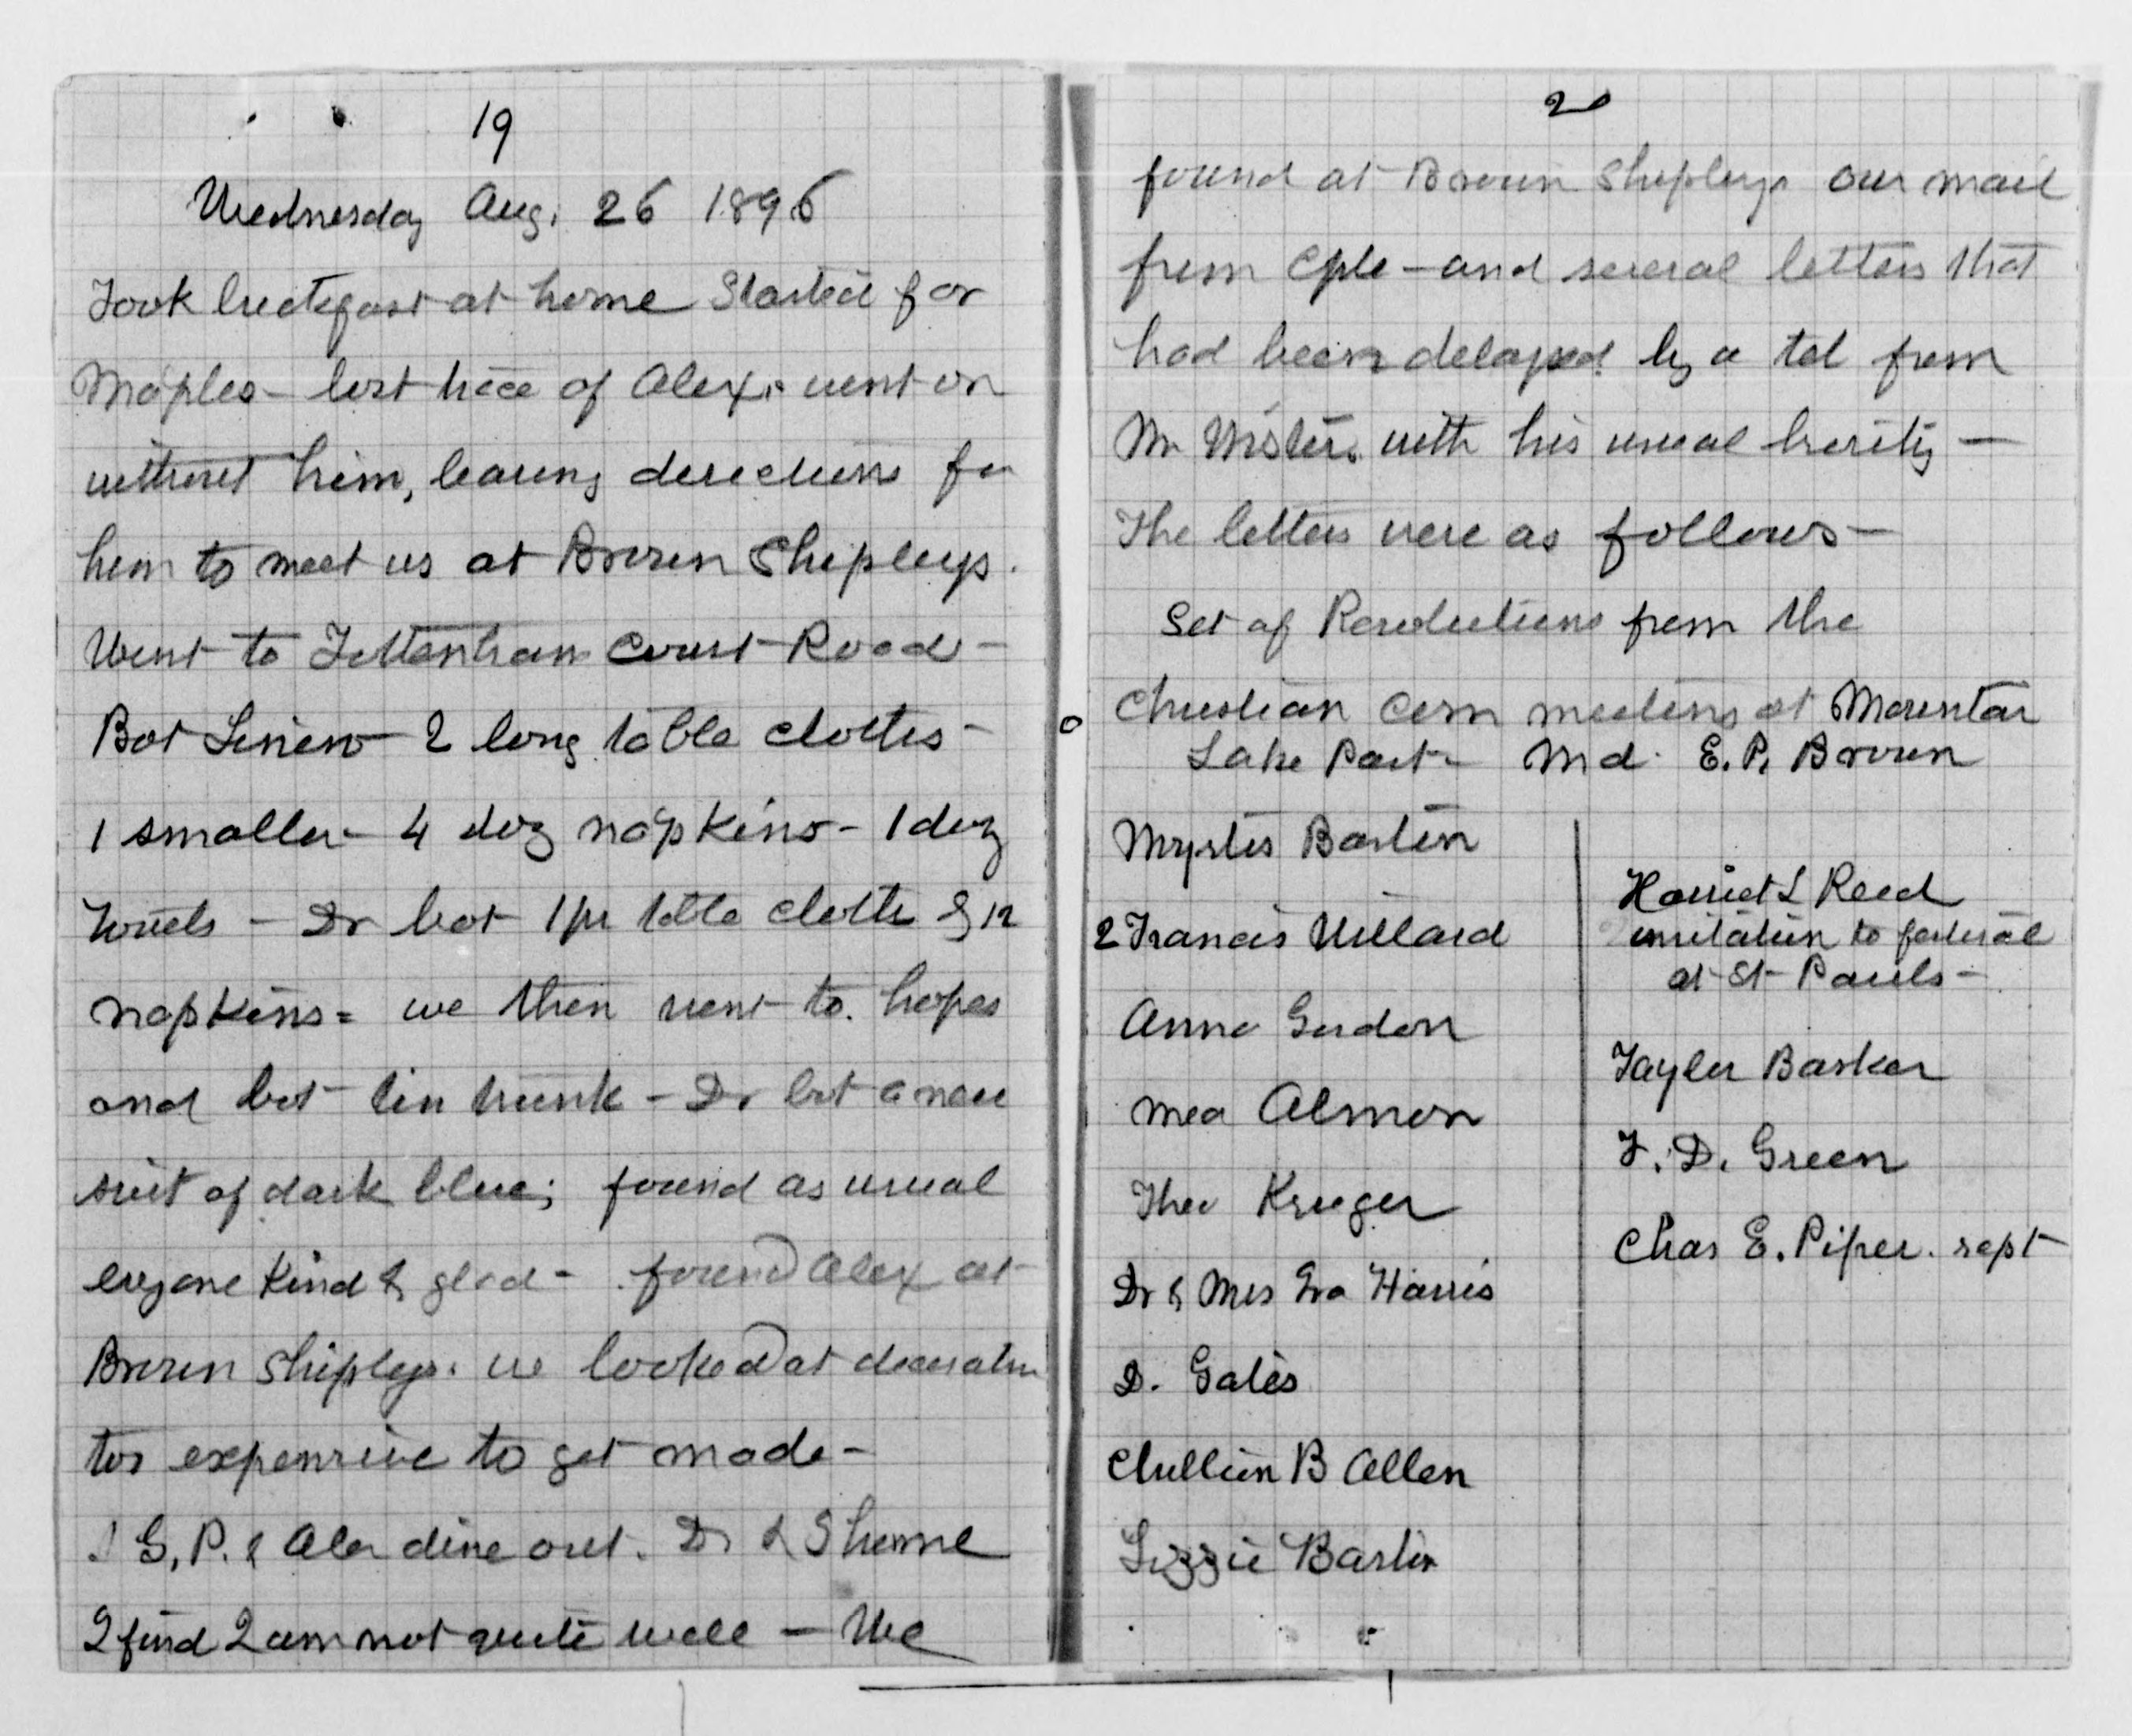 19
Wednesday Aug. 26 1896
Took breakfast at home Started for
Maples - lost trace of Alex. went on
without him, leaving directions for
him to meet us at Brown Shipleys.
Went to Tottenham Court Road -
Bot Linen - 2 long table cloths -
1 smaller - 4 doz napkins - 1 doz
Towels - Dr bot 1 pr table cloth & 12
napkins = we then went to hopes
and bot tin trunk - Dr bot a new
suit of dark blue; found as usual
evryone kind & glad - found Alex at
Brown Shipleys. we looked at decoration
too expensive to get made -
G. P. & Alex dine out. Dr & I home
I find I am not quite well - We
20
found at Brown Shipleys our mail
from Cple - and several letters that
had been delayed by a tel from
Mr with his usual brevity -
The letters were as follows -
Set of Resolutions from the
Christian Com meeting at Mountan
Lake Park - Md. E. P. Brown
Myrtis Barton
2 Francis Willard
Anna Gordon
Almon
Theo Kruger
Dr & Mrs Ira Harris
D. Gates
B Allen
Lizzie Barton
Harriet L Reed
invitation to festival
at St Pauls -
Tayler Barker
F. D. Green
Chas E. Piper. rept